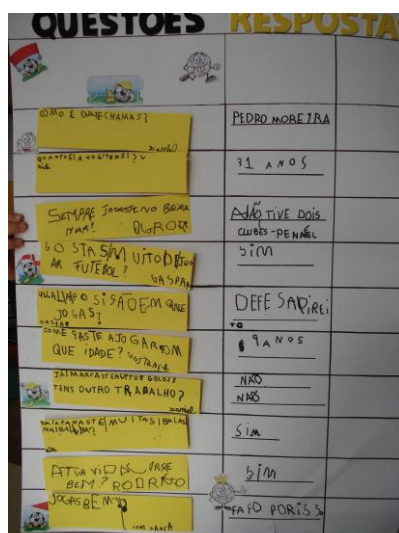 QUESTÕES RESPOSTA
COMO É QUE TE CHAMAS?
PEDRO MOREIRA
31 ANOS
SEMPRE JOGASTE NO BEIRA
MAR?
NÃO TIVE DOIS
CLUBES-PENAFIEL
GOSTAS MUITO DE
JOGAR FUTEBOL?
GASPAR
SIM
QUAL A POSISÃO EM QUE
JOGAS?
DEFESA DIREI
TO
COMEÇASTE A JOGAR COM
QUE IDADE?
9 ANOS
JÁ MARCASTE MUITOS GOLOS?
TENS OUTRO TRABALHO?
NÃO
NÃO
SIM
A TUA VIDA CORRE
BEM? RODRIGO
SIM
JOGAS BEM?
FAÇO POR ISSO